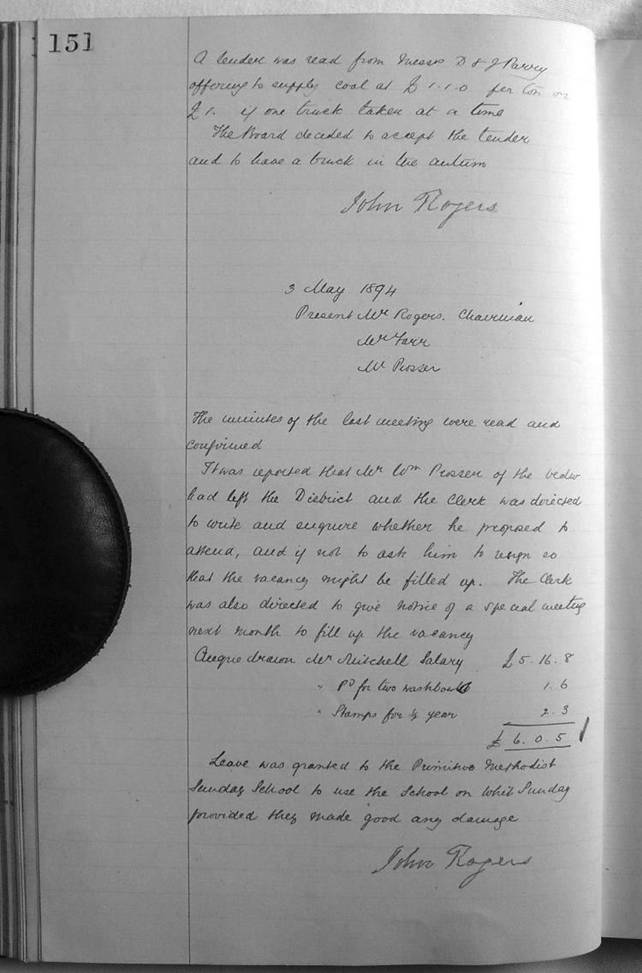 151
A tender was read from Messrs D & J Parry
offering to supply coal at £1.1.0 per ton or
£1. if one truck taken at a time
The Board decided to accept the tender
and to have a truck in the autum
John Rogers
3 May 1894
Present Mr Rogers. Chairman
Mr Farr
Mr Prosser
The minutes of the last meeting were read and
confirmed
It was reported that Mr Wm Prosser of the
had left the District and the Clerk was directed
to write and enquire whether he proposed to
attend, and if not to ask him to resign so
that the vacancy might be filled up. The Clerk
was also directed to give notice of a special meeting
next month to fill up the vacancy
Cheque drawn Mr Mitchell Salary £5.16.8
" Pd for two washbowls 1.6
" Stamps for ½ year 2.3
£6.0.5
Leave was granted to the Primitive Methodist
Sunday School to use the School on Whit Sunday
provided they made good any damage
John Rogers